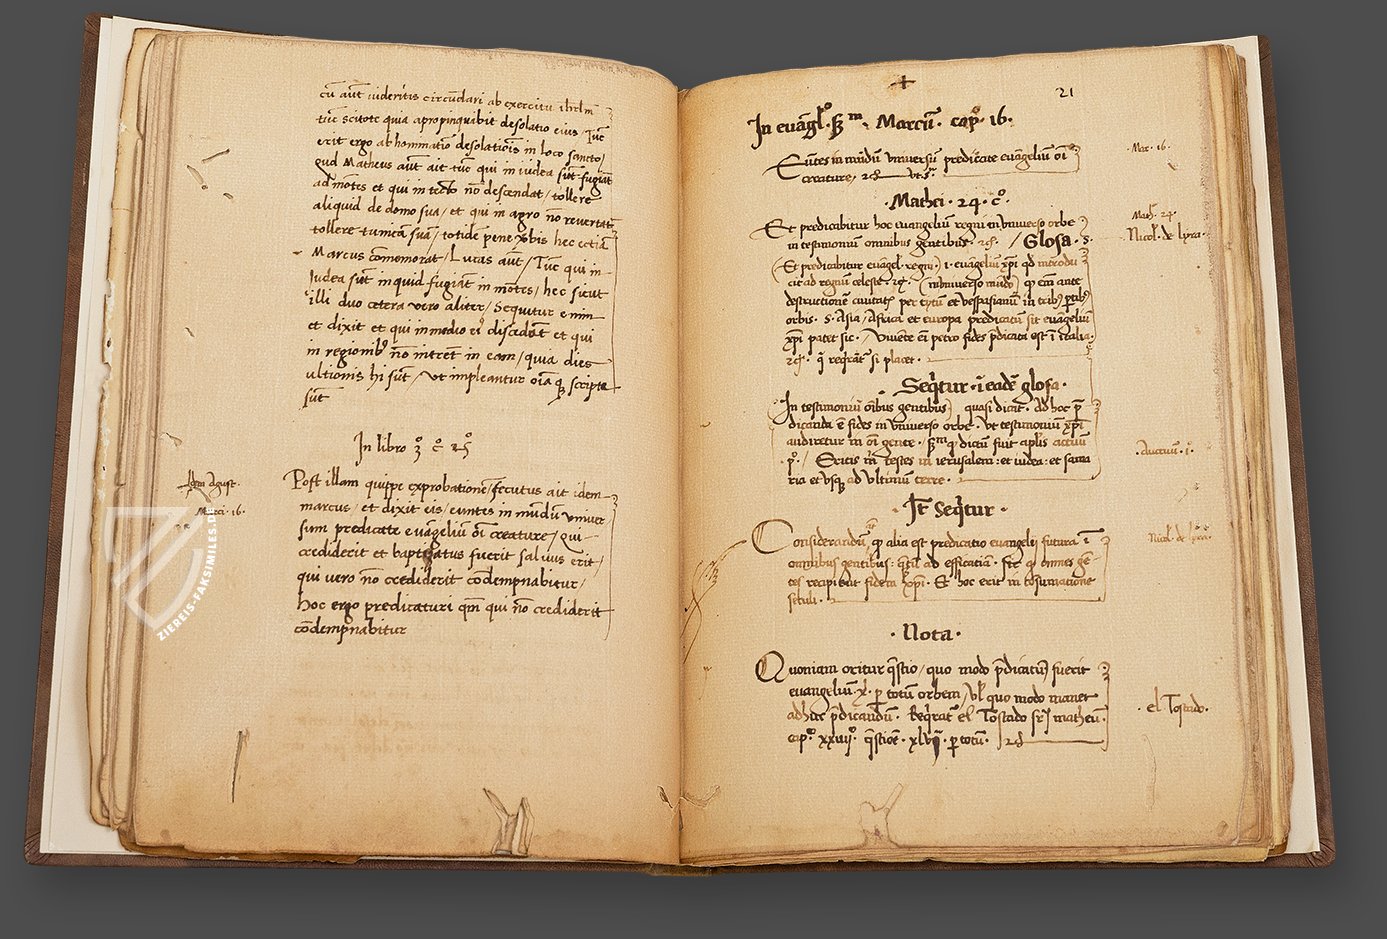 cū aūt uideritis circūdari ab exercitu ihrlm
tūc scitote quia apropinquibit desolatio eius / Tūc
erit ergo abhominatio desolatiōis in loco sancto /
qud Matheus aūt ait tūc qui in iudea sūt fugiāt
ad mōtes et qui in tecto nō descendat / tollere
aliquid de domo sua / et qui in agro nō revertat
tollere tunicā suā / totidē pene vbis hec etiā
Marcus cōmemorat / Lucas aūt / Tūc qui in
Iudea sūt inquid fugiāt in mōtes / hec sicut
illi duo cetera vero aliter / Sequitur enim
et dixit et qui in medio ei discedāt et qui
in regionibꝰ nō intrēt in eam / quia dies
ultionis hi sūt / vt impleantur oīa q̄ scripta
sūt
In libro 3º cº 25º
Post illam quippe exprobationē / secutus ait idem
marcus / et dixit eis / euntes in mūdū vniuer
sum predicate evāgeliū oī creature / qui
crediderit et baptiçatus fuerit saluus erit /
qui vero nō crediderit cōdempnabitur /
Hoc ergo predicaturi qm̄ qui nō crediderit
cōdempnabitur
Agust.
Marci · 16 ·
ZIEREIS-FAKSIMILES.DE
21
In euāgl.º s̄m · Marcū · capº · 16 ·
Eūtes in mūdū vniuersū predicate euāgeliū oī
creature / 2c̄ vt sª
· Mar · 16 ·
· Mathei · 24 · cº ·
Et predicabitur hoc euangeliū regni in vniuerso orbe
in testimoniū omnibus gentibus · 2c̄ · / Glosa · S ·
Math · 24
Nicol · de lyra ·
(Et predicabitur euāgel · regni) · i · euāgeliū xp̄i qd introdu
cit ad regnū celeste · 2c̄ · (in vniuerso mūdo) q̄ eīn ante
destructionē ciuitatꝭ per tytū et vespasianū in tribꝰ ptibꝰ
orbis · S · Asia / Africa et europa predicatū sit evāgeliū
xp̄i patet sic · / viuēte eī petro fides p̄dicata est ī ītalia ·
2c̄ · q̄ reqrāt si placet ·
· Seq̄tur · ī eadē glosa ·
In testimoniū oībus gentibus) quasi dicit · ad hoc p̄
dicanda ē fides in vniuerso orbe · vt testimoniū xp̄i
audiretur in oī gente · s̄m q̄ dictū fuit aplis actuū
· pº · / Eritis m̄ testes in ierusalem : et iudea : et sama
ria et vsq̄ ad vltimū terre ·
· Actuū · 1 ·
· It Seq̄tur ·
Considerandū q̄ alia est predicatio euangelij futura ī
omnibus gentibus : q̄tū ad efficatiā · sic q̄ omnes gē
tes recipient fidem xp̄i · Et hoc erit in cōsumatione
seculi ·
Nicol · de lyra ·
· Nota ·
Quoniam oritur q̄stio / quo modo p̄dicatū fuerit
evangeliū · x̄ · p totū orbem / vl quo modo manet
adhuc p̄dicandū · Reqrat el Tostado sr̄ matheū ·
capº · xxiiijº · q̄stiōe · xlvij · p totū · 2c̄
· el Tostado ·